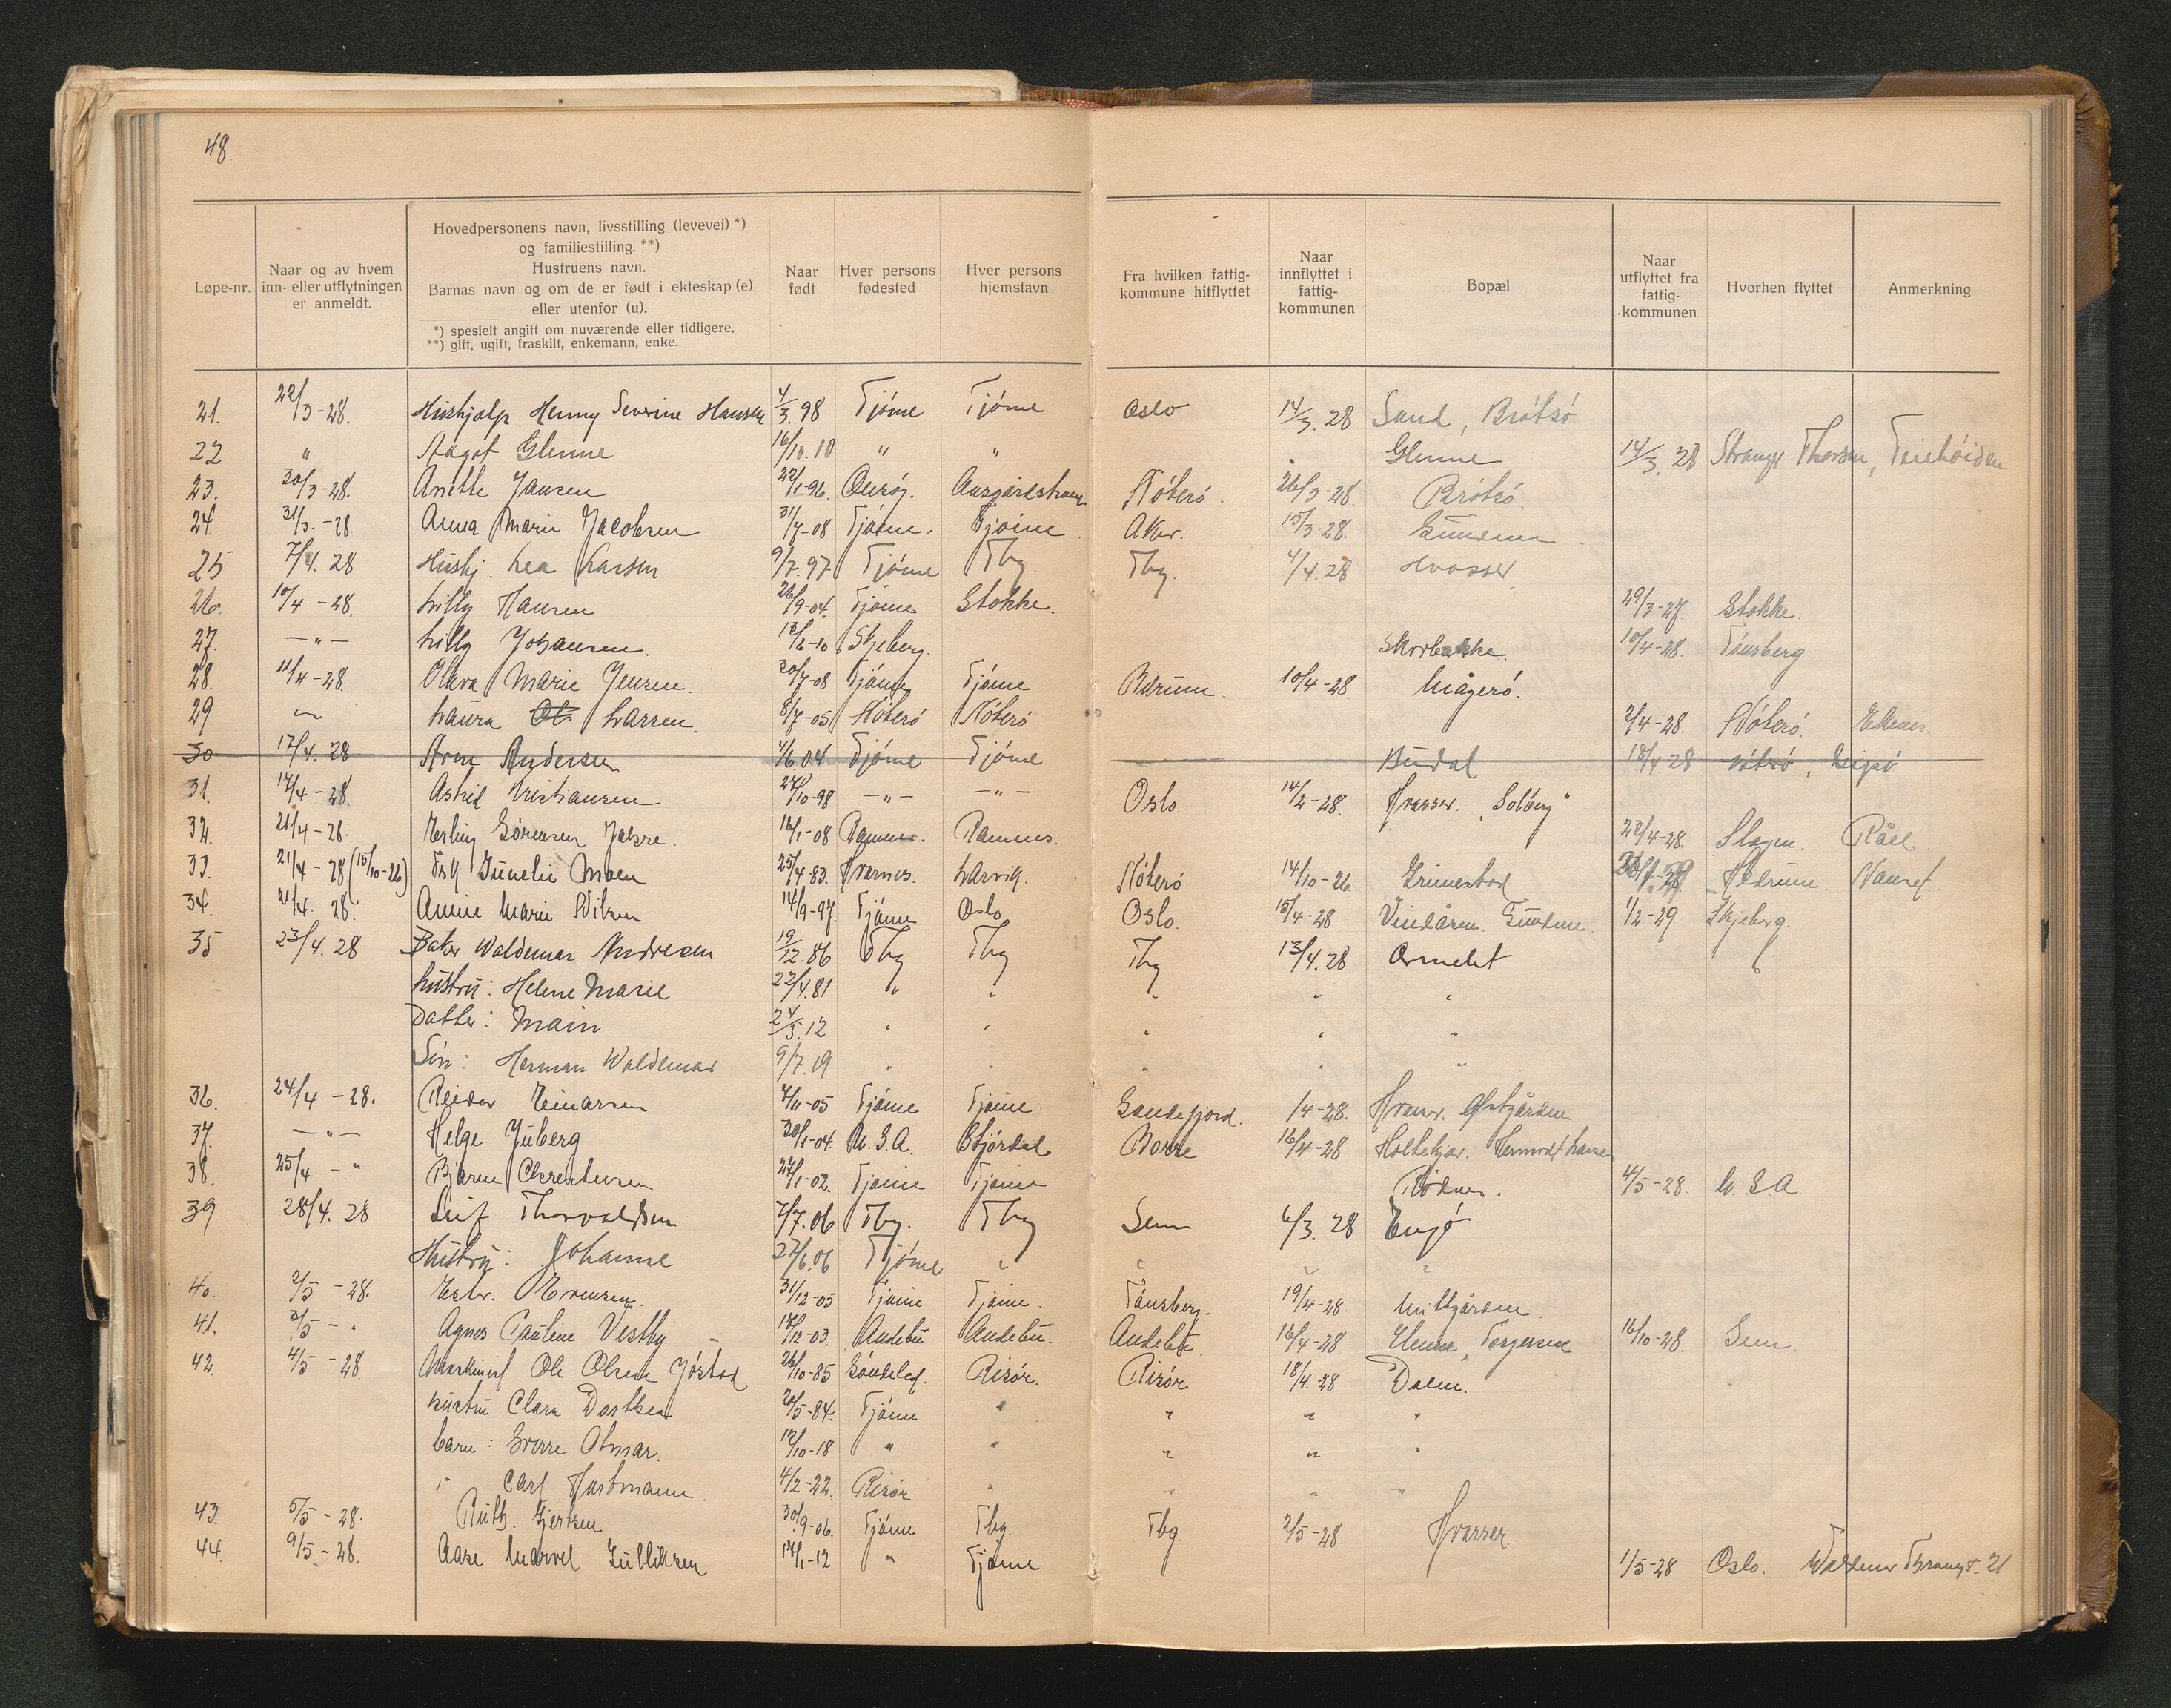 48.
Løpe-nr.
Naar og av hvem inn- eller utflytningen er anmeldt.
Hovedpersonens navn, livsstilling (levevei) *) og familiestilling. **)
Hustruens navn.
Barnas navn og om de er født i ekteskap (e) eller utenfor (u).
*) spesielt angitt om nuværende eller tidligere.
**) gift, ugift, fraskilt, enkemann, enke.
Naar født
Hver persons fødested
Hver persons hjemstavn
Fra hvilken fattigkommune hitflyttet
Naar innflyttet i fattigkommunen
Bopæl
Naar utflyttet fra fattigkommunen
Hvorhen flyttet
Anmerkning
21. 22/3-28. Hushjælp Henny Severine Hansen 4/3.98 Tjöme Tjöme Oslo 14/3.28 Sand, Brötsö
22 " Aagot Glenne 16/10.10 " " Glenne 14/3.28 Thorsen,
23. 30/3-28. Anette Jansen 22/1-96. Aasgårdstrand Nöterö. 26/3-28. Brötsö.
24. 31/3.-28. Anna Marie Jacobsen 31/7-08 Tjöme. Tjöme. Aker. 15/3-28.
25 7/4.28 Hushj. Lea Larsen 9/7.97 Tjöme Tbg. Tbg. 4/4.28 Hvasser
26. 10/4-28. Lilly Hansen 26/9-04. Tjöme Stokke. 29/3-27. Stokke.
27. — " — Lilly Johansen. Skjeberg. Skorbakke. 10/4-28. Tönsberg
28. 11/4-28. Olava Marie Jensen. 30/7-08 Tjöme Tjöme Bærum. 10/4-28. Mågerö.
29. " Laura Larsen. 8/7-05 Nöterö Nöterö 2/4-28. Nöterö. Ekenes.
30 17/4.28 Arne Andersen 4/6.04 Tjöme Tjöme Budal 18/4.28 Nöterö,
31. 14/4-28. Astrid Kristiansen 27/10-98 — " — — " — Oslo. 14/2-28. Hvasser. "Solberg"
32. 21/4-28. Erling Sörensen 16/1-08 Ramnes. Ramnes. 22/4-28. Slagen. Råel
33. 21/4-28. (15/10-26) Moen 25/4-83. Hvarnes. Larvik. Nöterö 14/10-26. Grimestad Hedrum. Nanset.
34. 21/4. 28. Marie Nilsen 14/9-97. Tjöme Oslo Oslo. 15/4-28 1/2-29 Skjeberg.
35 23/4.28 Baker Waldemar Andresen 19/12.86 Tbg Tbg Tbg 13/4.28 Ormelet
Hustru: Helene Marie 22/4.81 " " " " "
Datter: Main 24/5.12 " " " " "
Sön: Herman Waldemar 9/7.19 " " " " "
36. 24/4-28. Reidar Einarsen 4/11-05 Tjöme Tjöme. Sandefjord. /4-28. Hvasser. Östgården
37. — " — Helge Juberg 30/1-04. U.S.A. Stjördal Borre 16/4-28 Holtekjær.
38. 25/4 - " Bjarne Christensen 27/1-02. Tjöme Tjöme Rödnes. 4/5-28. U.S.A.
39 28/4.28 Leif Thorvaldsen 7/7.06 Tbg. Tbg Sem 6/3.28 Engö
Hustru: Johanne 27/6.06 Tjöme " " " "
40. 2/5-28. Ester. 31/12-05 Tjöme Tjöme. Tönsberg. 19/4-28. Midtgården
41. 3/5 - " Agnes Pauline Vestby. 17/12-03. Andebu Andebu. Andebu. 16/4-28 Glenne, Torgersen 16/10-28. Sem.
42. 4/5-28. Maskinist Ole Olsen Jöstad 26/10-85 Söndeled. Risör. Risör 18/4.-28 Dalen.
Hustru Clara Dorthea 20/5-84. Tjöme " " " "
barn: Sverre Otmar. 12/10-18 " " " " "
" Carl Hartmann. 4/2-22. Risör " " " "
43. 5/5-28. Ruth. Gjertsen 30/9-06. Tjöme Tbg. Tbg. 2/5-28. Hvasser
44. 9/5-28. Aase Marvel Gulliksen 17/1-12 " Tjöme 1/5-28 Oslo. Waldemar Thranegt. 21